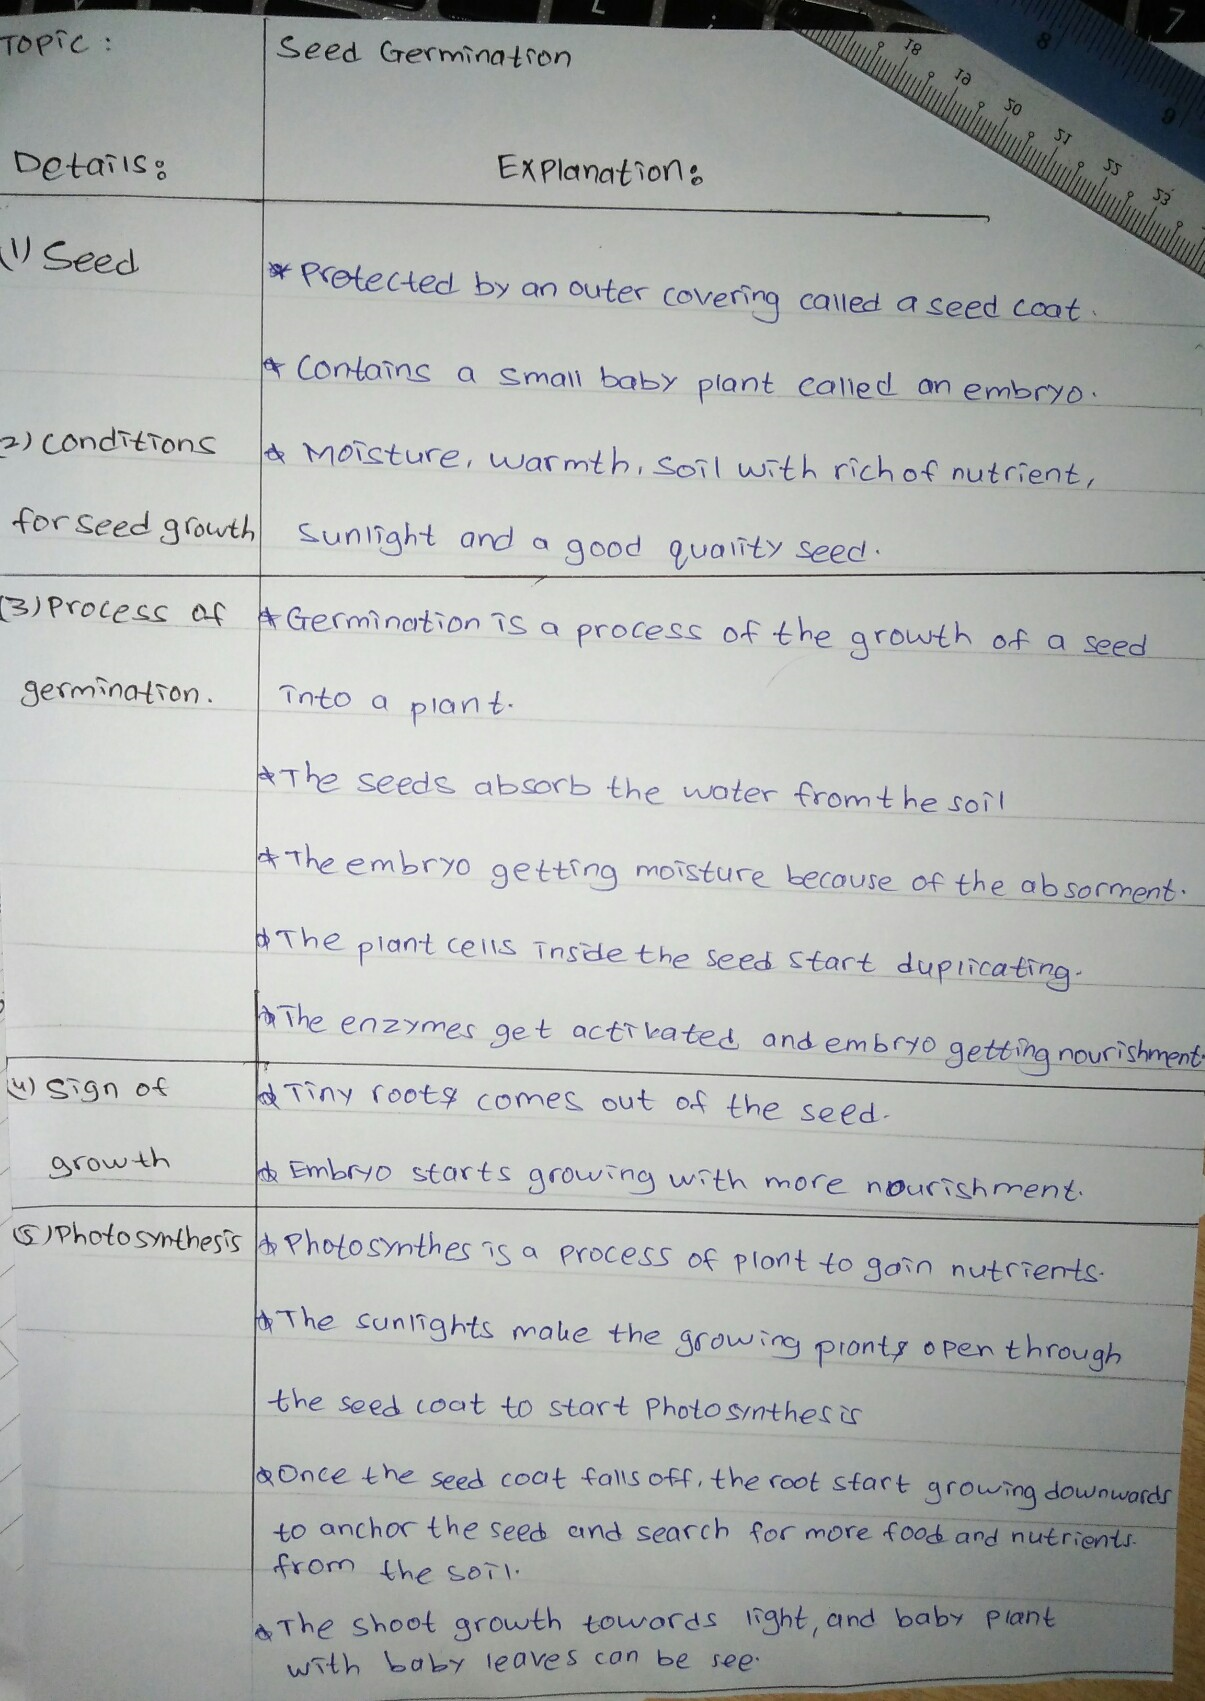 Topic :
Seed Germination
Details:
Explanation:
(1) Seed
* Protected by an outer covering called a seed coat.
* Contains a small baby plant called an embryo.
2) Conditions
* Moisture, warmth, soil with rich of nutrient,
for seed growth
sunlight and a good quality seed.
(3) Process of
* Germination is a process of the growth of a seed
germination.
into a plant.
* The seeds absorb the water from the soil
* The embryo getting moisture because of the absorment.
* The plant cells inside the seed start duplicating.
* The enzymes get activated and embryo getting nourishment
(4) Sign of
* Tiny roots comes out of the seed.
growth
* Embryo starts growing with more nourishment.
(5) Photosynthesis
* Photosynthes is a process of plant to gain nutrients.
* The sunlights make the growing plants open through
the seed coat to start Photosynthesis
* Once the seed coat falls off, the root start growing downwards
to anchor the seed and search for more food and nutrients
from the soil.
* The shoot growth towards light, and baby plant
with baby leaves can be see.
18
19
20
21
22
23
8
9
7
L
;